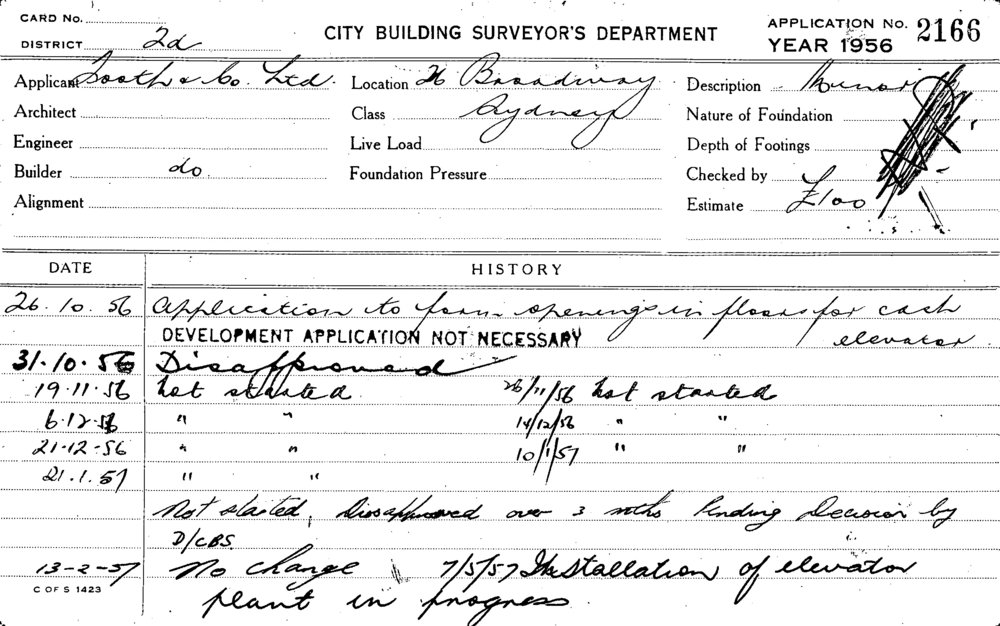 CARD No.
DISTRICT 2d
CITY BUILDING SURVEYOR'S DEPARTMENT
APPLICATION No. 2166
YEAR 1956
Applicant Tooth & Co. Ltd. Location 26 Broadway Description Minor
Architect Class Sydney Nature of Foundation
Engineer Live Load Depth of Footings
Builder do Foundation Pressure Checked by
Alignment Estimate £100
DATE HISTORY
26.10.56 Application to form openings in floors for cash
elevator
DEVELOPMENT APPLICATION NOT NECESSARY
31.10.56 Disapproved
19.11.56 Not started 26/11/56 Not started
6.12.56 " " 14/12/56 " "
21-12-56 " " 10/1/57 " "
21.1.57 " "
Not started, Disapproved over 3 mths Pending Decision by
D/CBS.
13-2-57 No change 7/5/57 Installation of elevator
plant in progress.
C OF S 1423